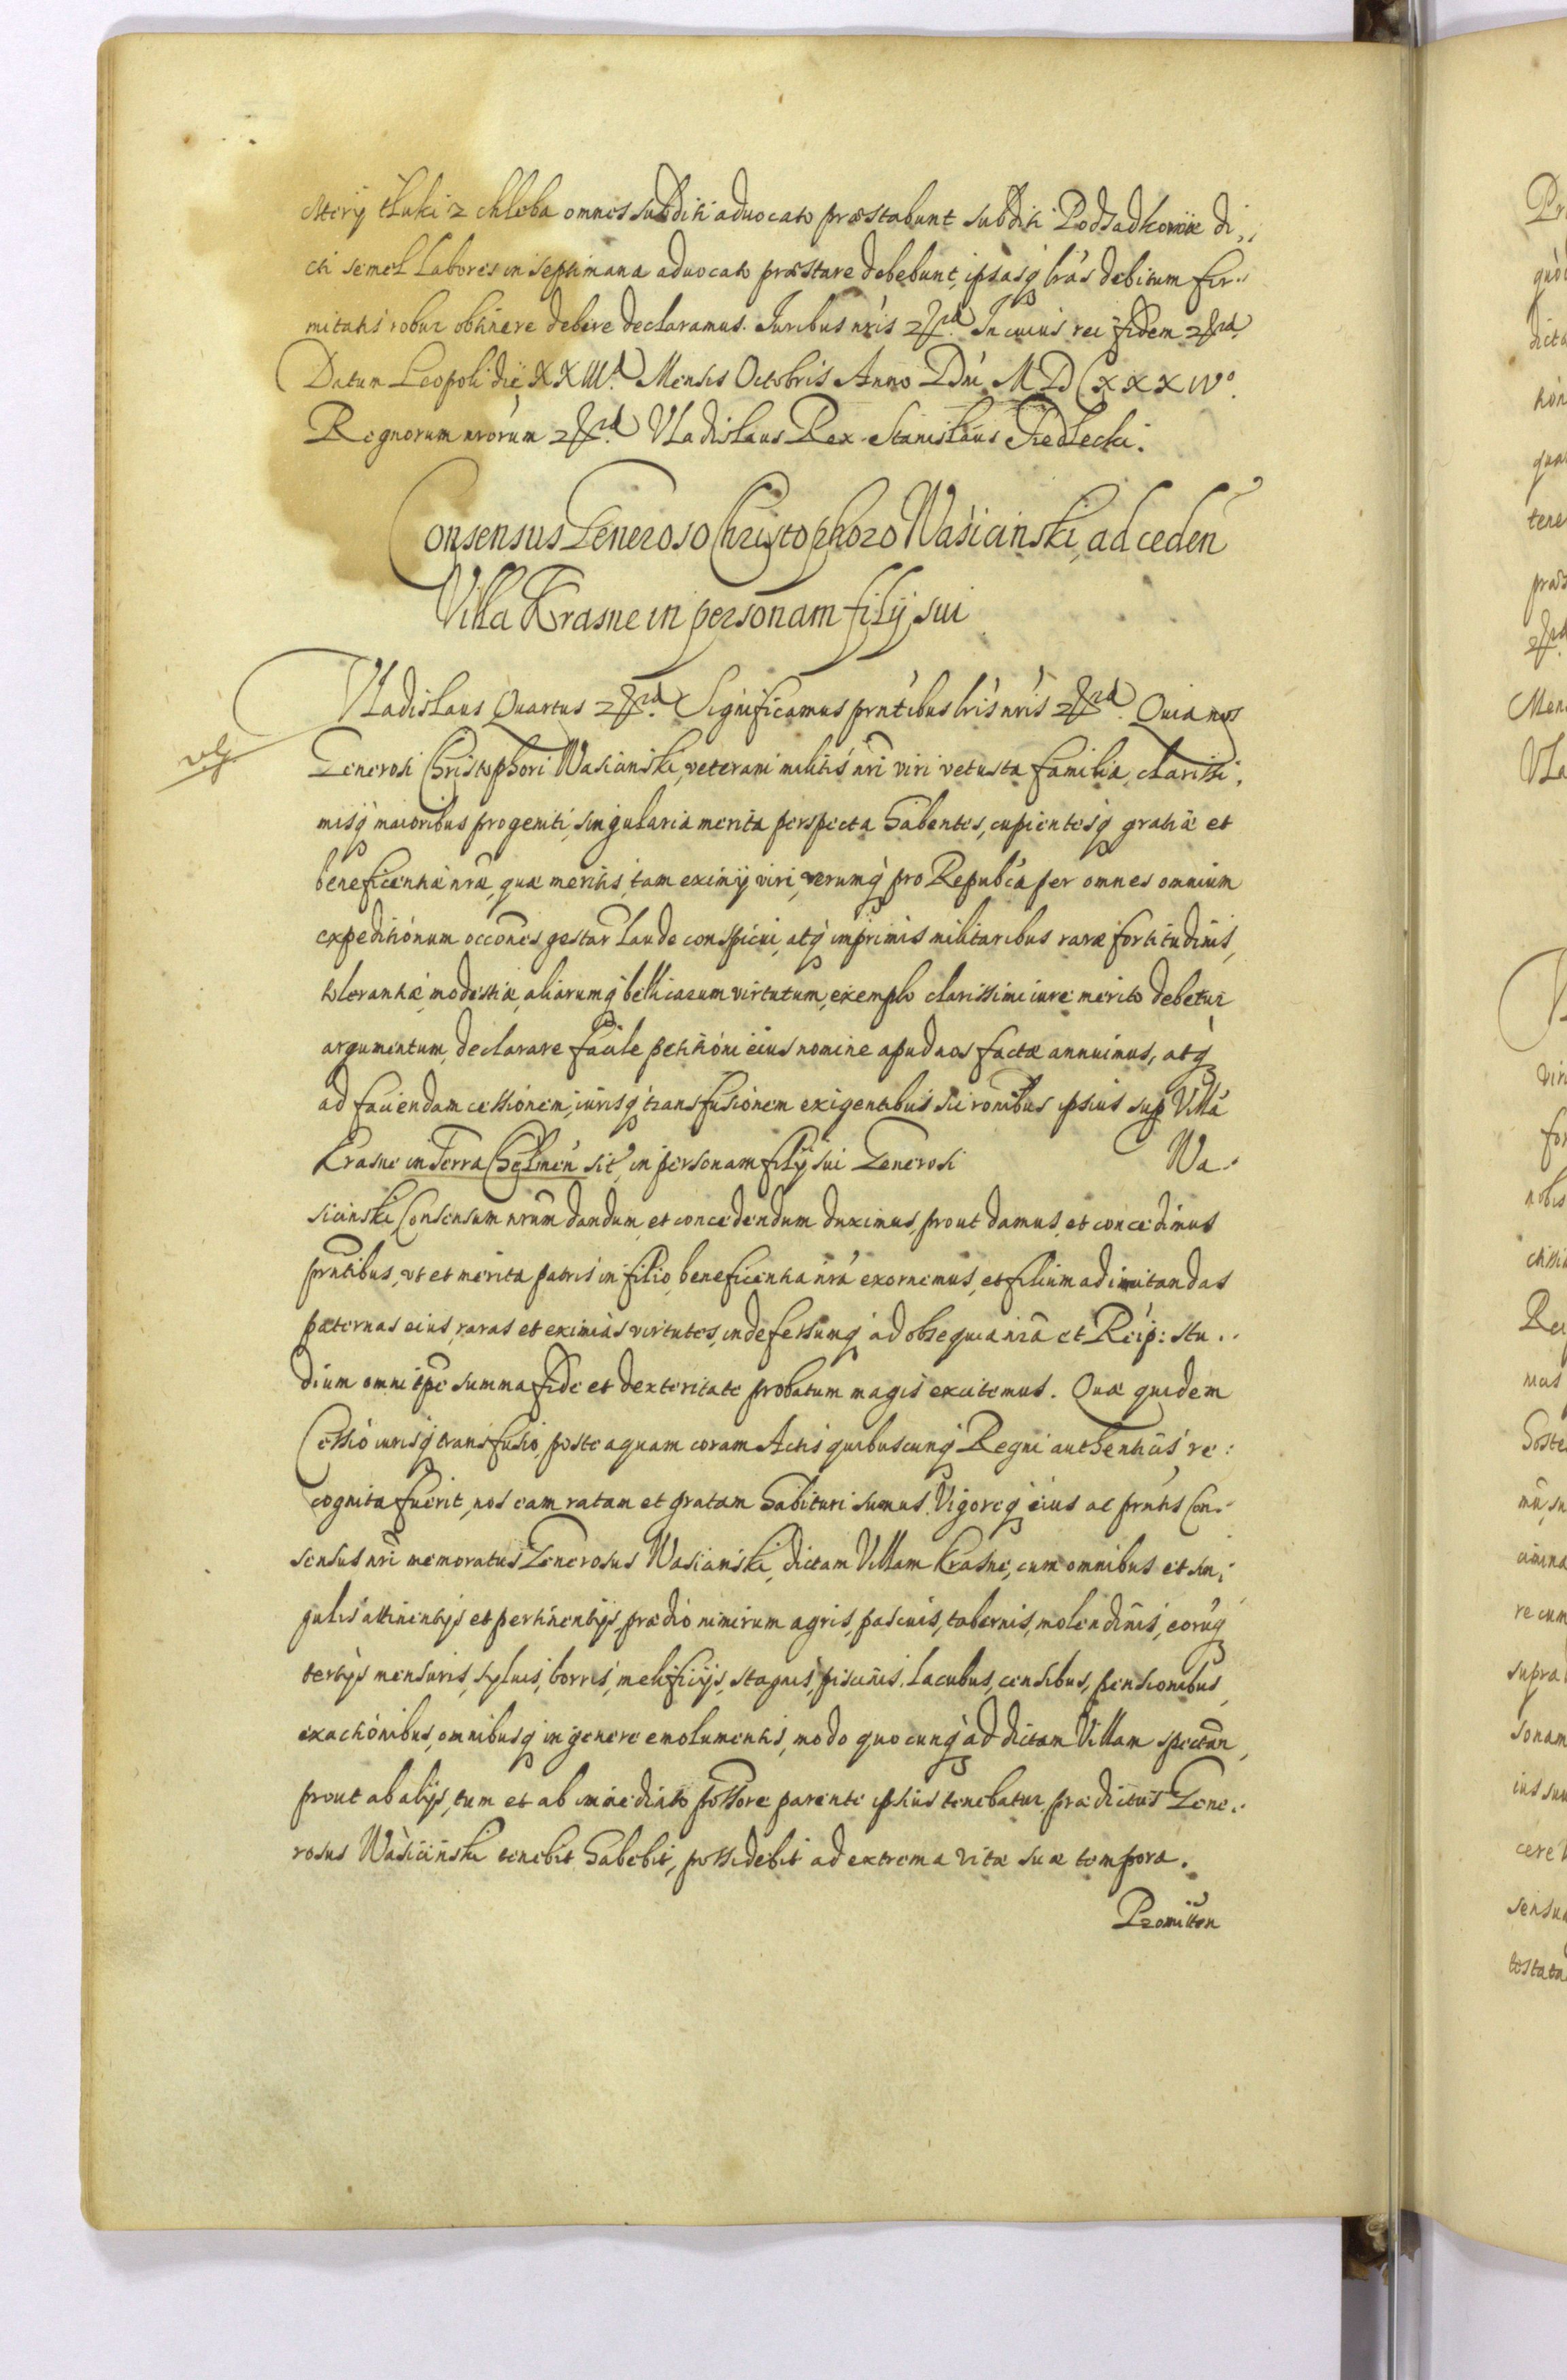 ctery tłuki z chleba omnes subditi aduocato præstabunt subditi Podsadkowie di,,
cti semel labores in septimana aduocato præstare debebunt, ipsasq lrás debitum fir..
mitatis robur obtinere debere declaramus. Iuribus nrís &ra. In cuius rei fidem &ra.
Datum Leopoli die XXIIIa. Mensis Octobris Anno Dni MDCXXXIVo.
Regnorum nrorum &ra. Vladislaus Rex. Stanislaus
Consensus Generoso Christophoro Wasicinski, ad ceden
Villa Krasne in personam filij sui
Vladislaus Quartus &ra. Significamus prntibus lris nris &ra. Quia nos
Generosi Christophori Wasicinski, veterani militis nri viri vetusta familia, clarissi,
misq maioribus progeniti, singularia merita perspecta habentes, cupientesq gratiæ et
beneficentiæ nræ, quæ meritis, tam eximij viri, rerumq pro Republca per omnes omnium
expeditionum occones gestar laude conspicui, atq inprimis militaribus raræ fortitudinis,
tolerantiæ, modestiæ, aliarumq bellicarum virtutum, exemplo clarissimi iure merito debetur
argumentum, declarare facile petitioni eius nomine apud nos factæ annuimus, atq
ad faciendam cessionem, iurisq transfusionem exigentibus sic ronibus ipsius sup Villa
Krasne in Terra Chelmen sit, in personam filij sui Generosi Wa..
sicinski Consensum nrum dandum et concedendum duximus, prout damus, et concedimus
prntibus, vt et merita patris in filio, beneficentia nra exornemus, et filium ad imitandas
paternas eius, raras et eximias virtutes, indefessumq ad obsequia nra et Reip: stu..
dium omni tpe summa fide et dexteritate probatum magis excitemus. Quæ quidem
Cessio iurisq transfusio, posteaquam coram Actis quibuscunq Regni authenticis re:
cognita fuerit, nos eam ratam et gratam habituri sumus. Vigoreq eius ac prntis Con..
sensus nri memoratus Generosus Wasicinski, dictam Villam Krasne, cum omnibus et sin,
gulis attinentijs et pertinentijs, prædio nimirum agris, pascuis, tabernis, molendinis, eorúq
tertijs mensuris, syluis, borris, melificijs, stagnis, piscinis, lacubus, censibus, pensionibus,
exactionibus, omnibusq in genere emolumentis, modo quocunq ad dictam Villam spectan,
prout ab alijs, tum et ab immediato possore parente ipsius tenebatur, prædictus Gene..
rosus Wasicinski tenebit habebit, possidebit ad extrema vitæ suæ tempora.
Promitten